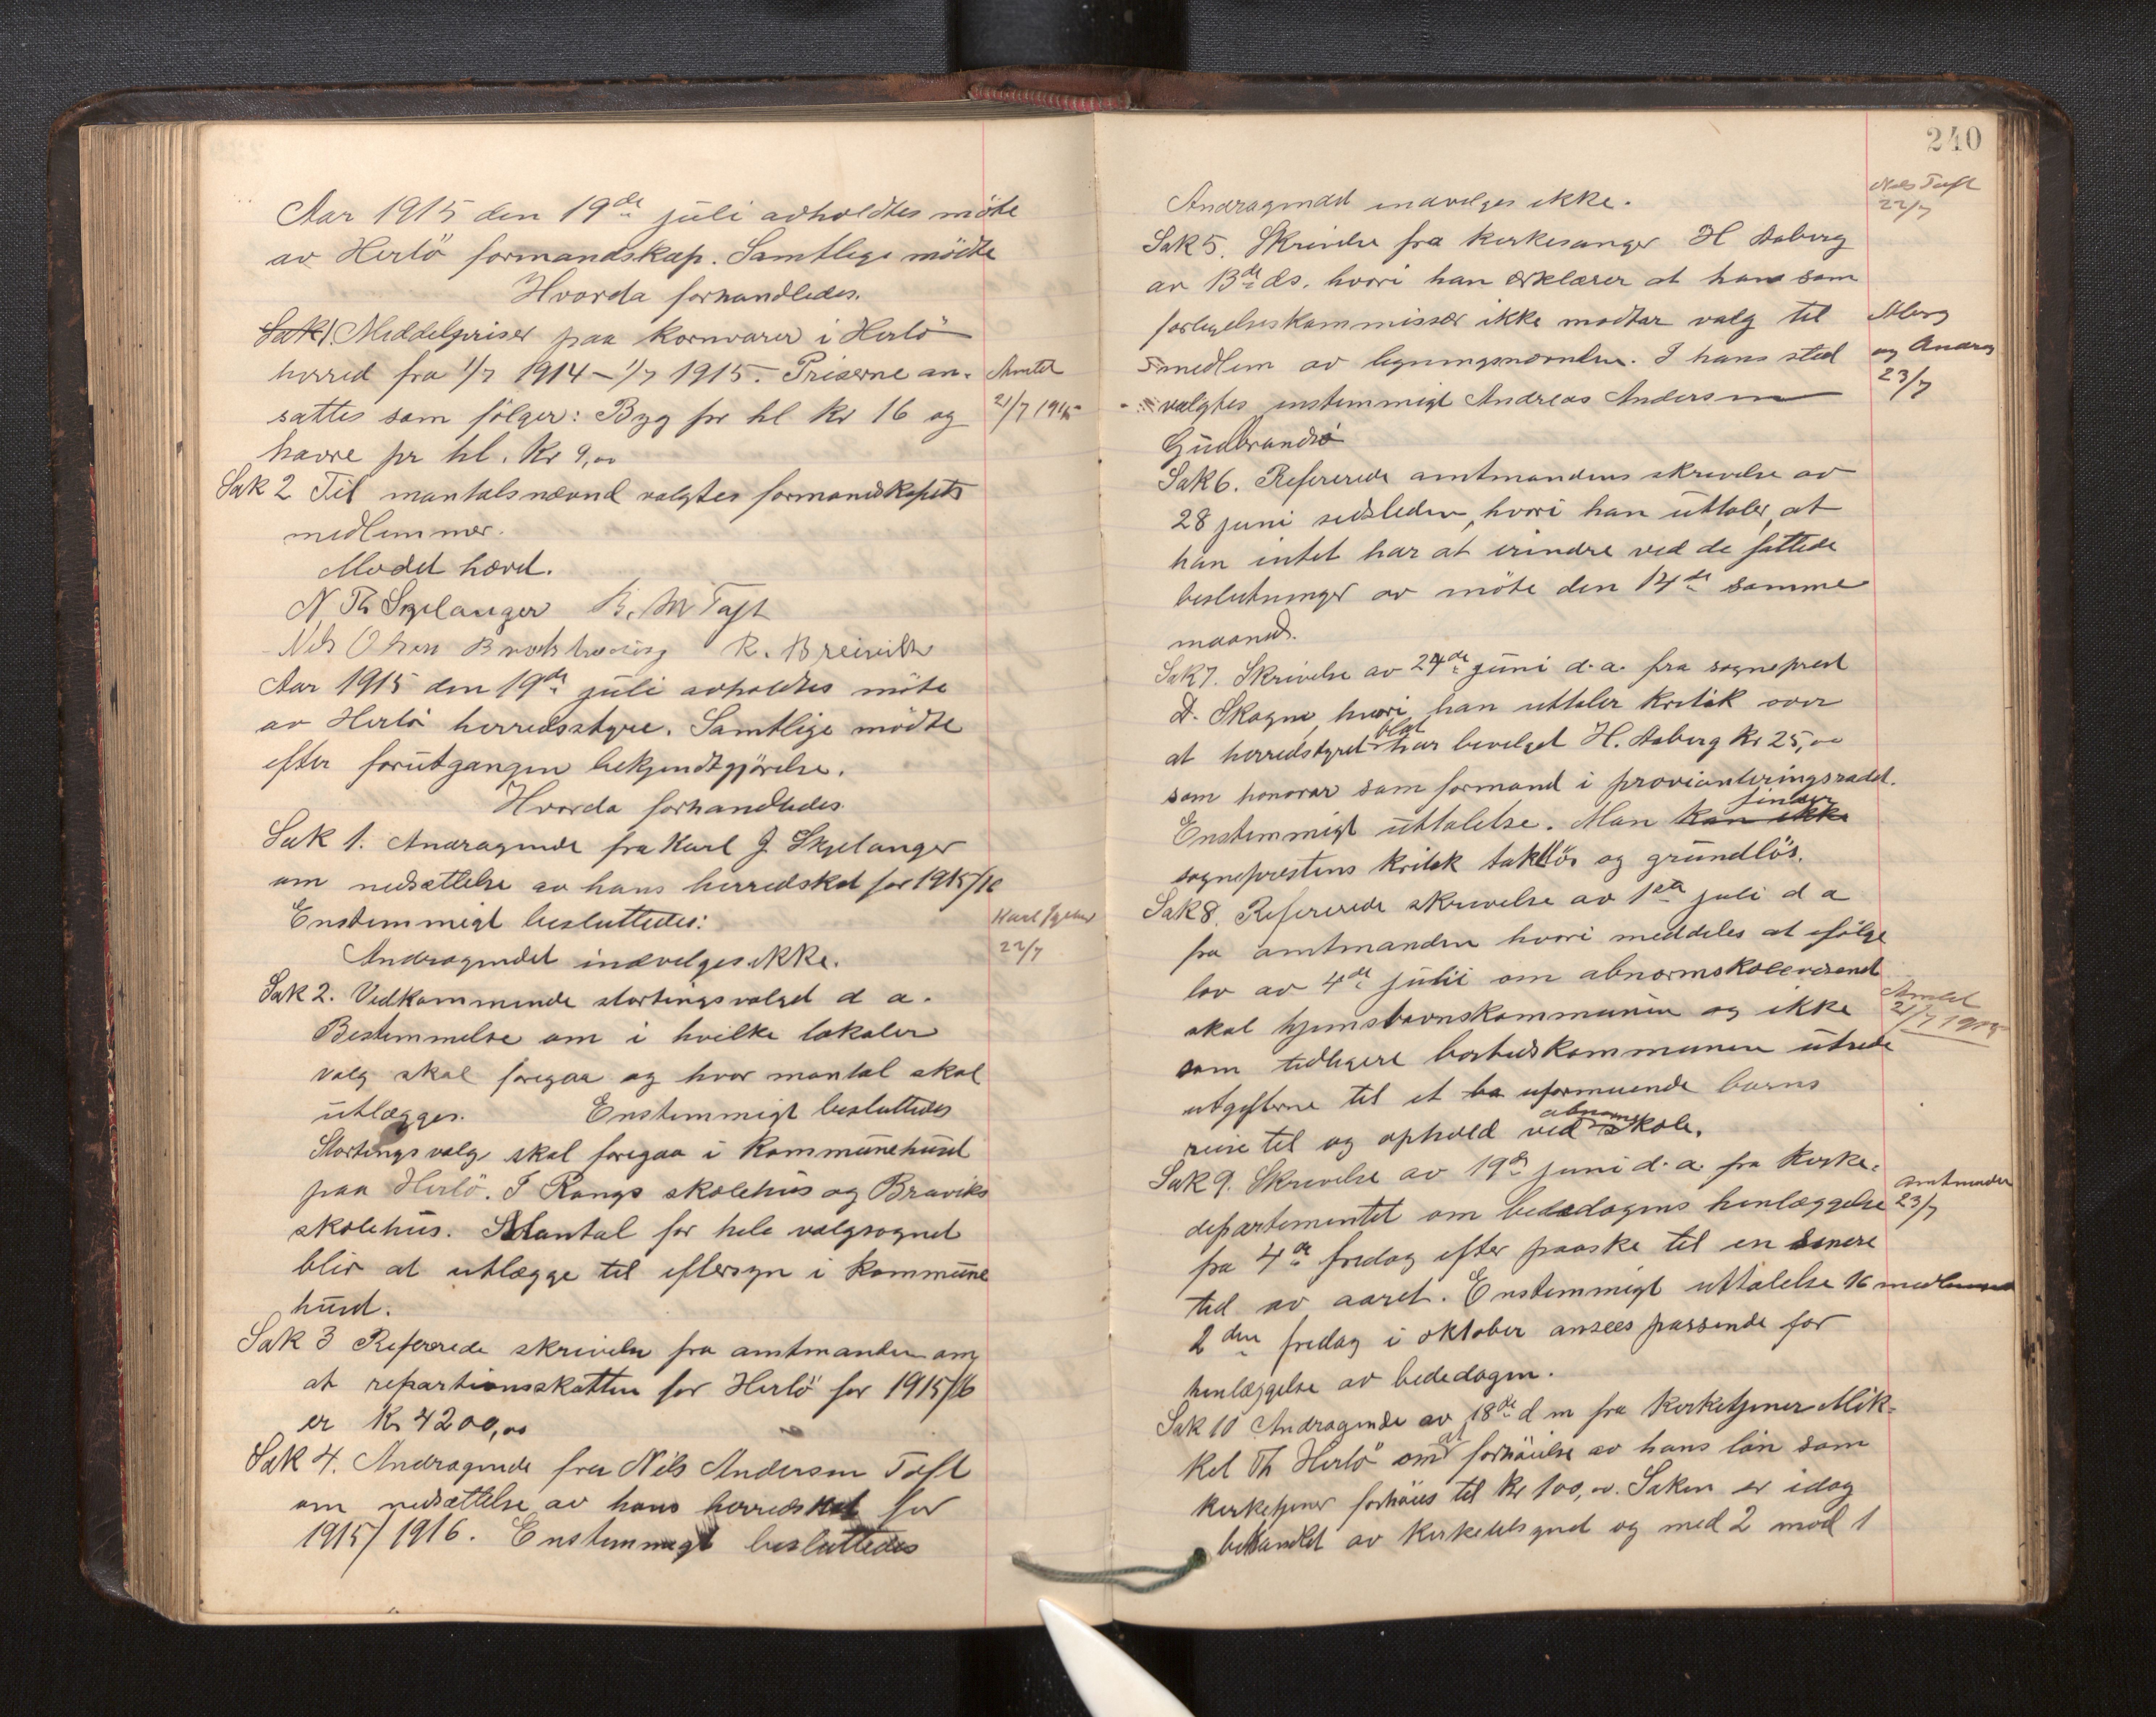 Aar 1915 den 19de juli avholdtes möte
av Herlö formandskap. Samtlige mödte
Hvorda forhandledes.
Sak 1. Middelpriser paa kornvarer i Herlö
herred fra 1/7 1914 – 1/7 1915. Priserne an-
sattes som fölger: Byg pr hl kr 16 og
havre pr hl. Kr 9,00
Amtet
21/7 1915
Sak 2 Til mantalsnævnd valgtes formandskapets
medlemmer.
Mödet hævd.
N. Th Skjelanger B. M Toft
Nils Olsen R. Breivik
Aar 1915 den 19de juli avholdtes möte
av Herlö herredsstyre. Samtlige mödte
efter forutgangen bekjendtgjörelse.
Hvorda forhandledes.
Sak 1. Andragende fra Karl J Skjelanger
om nedsættelse av hans herredskat for 1915/16
Enstemmigt besluttedes:
Andragendet indvelges ikke.
22/7
Sak 2. Vedkommende stortingsvalget d a.
Bestemmelse om i hvilke lokaler
valg skal foregaa og hvor mantal skal
utlægges. Enstemmigt besluttedes
Stortingsvalg skal foregaa i kommunehuset
paa Herlö. I Rongs skolehus og Braviks
skolehus. Mantal for hele valgsognet
blir at utlægge til eftersyn i kommune
huset.
Sak 3 Refererede skrivelse fra amtmanden om
at repartionsskatten for Herlö for 1915/16
er Kr 4200,00
Sak 4. Andragende fra Nils Andersen Toft
om nedsættelse av hans herredskat for
1915/1916. Enstemmigt besluttedes
240
Andragendet indvelges ikke.
Nils Toft
22/7
Sak 5. Skrivelse fra kirkesanger H Aaberg
av 13de ds. hvori han erklærer at han som
forligelseskommissær ikke modtar valg til
medlem av ligningsnævnden. I hans sted
valgtes enstemmigt Andreas Andersen
Gudbrandsö
Aberg
og Andreas
23/7
Sak 6. Refererede amtmandens skrivelse av
28 juni sidsleden, hvori han uttaler, at
han intet har at erindre ved de fattede
beslutninger av möte den 14de samme
maaned.
Sak 7. Skrivelse av 24de juni d.a. fra sogneprest
D. Skogen, hvori han uttaler kritik over
at herredstyret blot har bevilget H. Aaberg Kr 25,00
som honorar som formand i provianteringsraadet.
Enstemmigt uttalelse. Man kan ikke finder
sogneprestens kritik taktlös og grundlös.
Sak 8. Refererede skrivelse av 1ste juli d a
fra amtmanden hvori meddeles at ifölge
lov av 4de juni om abnormskolevæsenet
skal hjemstavnskommunen og ikke
som tidligere bostedskommunen utrede
utgifterne til et ba uformuende barns
reise til og ophold ved abnorm skole.
Amtet
21/7 1915
Sak 9. Skrivelse av 19de juni d.a. fra Kirke-
departementet om bededagens henlæggelse
fra 4de fredag efter paaske til en senere
tid av aaret. Enstemmigt uttalelse 16 medlemmer
2den fredag i oktober ansees passende for
henlæggelse av bededagen.
Amtmanden
23/7
Sak 10 Andragende av 18de d m fra kirketjener Mik-
kel Th Herlö om at forhöielse av hans lön som
kirketjener forhöies til kr 100,00. Saken er idag
behandlet av kirketilsynet og med 2 mod 1